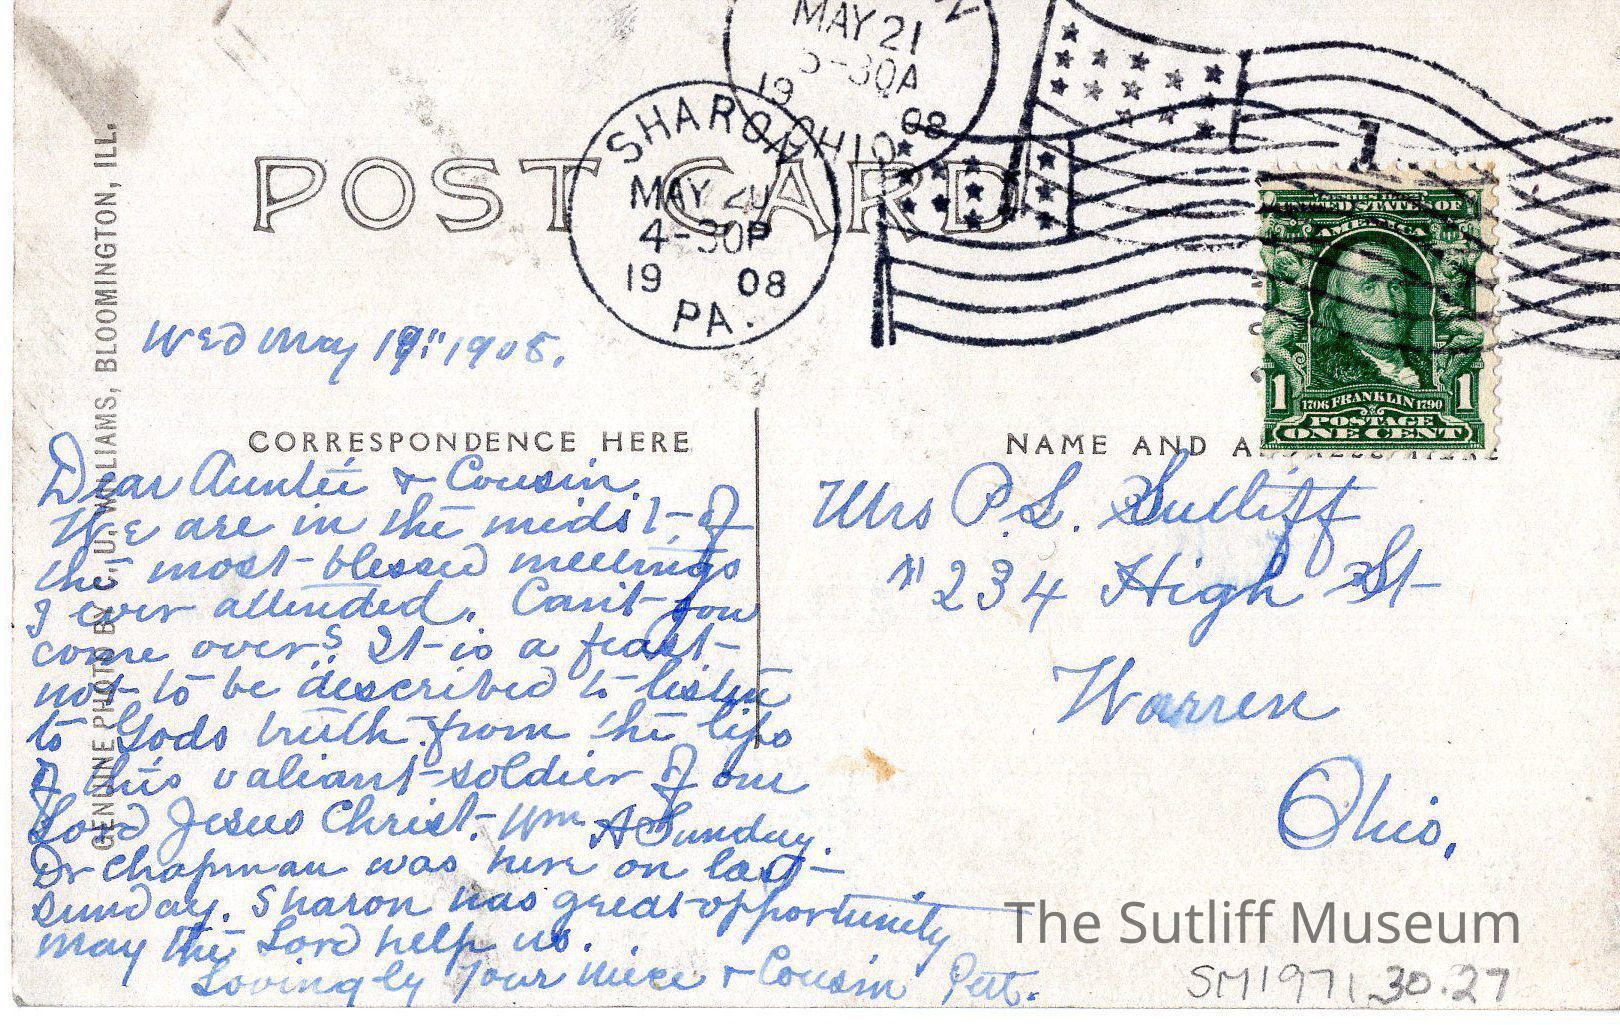 MAY 21
-30A
19 08
OHIO
SHARON
MAY 20
4-30P
19 08
PA.
1
POST CARD
UNITED STATES OF
AMERICA
1 1
1706 FRANKLIN 1790
POSTAGE
ONE CENT
GENUINE PHOTO BY C. U. WILLIAMS, BLOOMINGTON, ILL.
Wed May 19" 1908.
CORRESPONDENCE HERE
Dear Auntie & Cousin.
We are in the midst of
the most blessed meetings
I ever attended. Can't you
come over? It is a feast
not to be described to listen
to Gods truth from the lips
of this valiant soldier of our
Lord Jesus Christ. Wm A Sunday.
Dr Chapman was here on last
Sunday. Sharon has great opportunity
may the Lord help us.
Lovingly Your Niece & Cousin
NAME AND A
Mrs P.L. Sutliff
#234 High St
Warren
Ohio.
The Sutliff Museum
SM1971.30.27